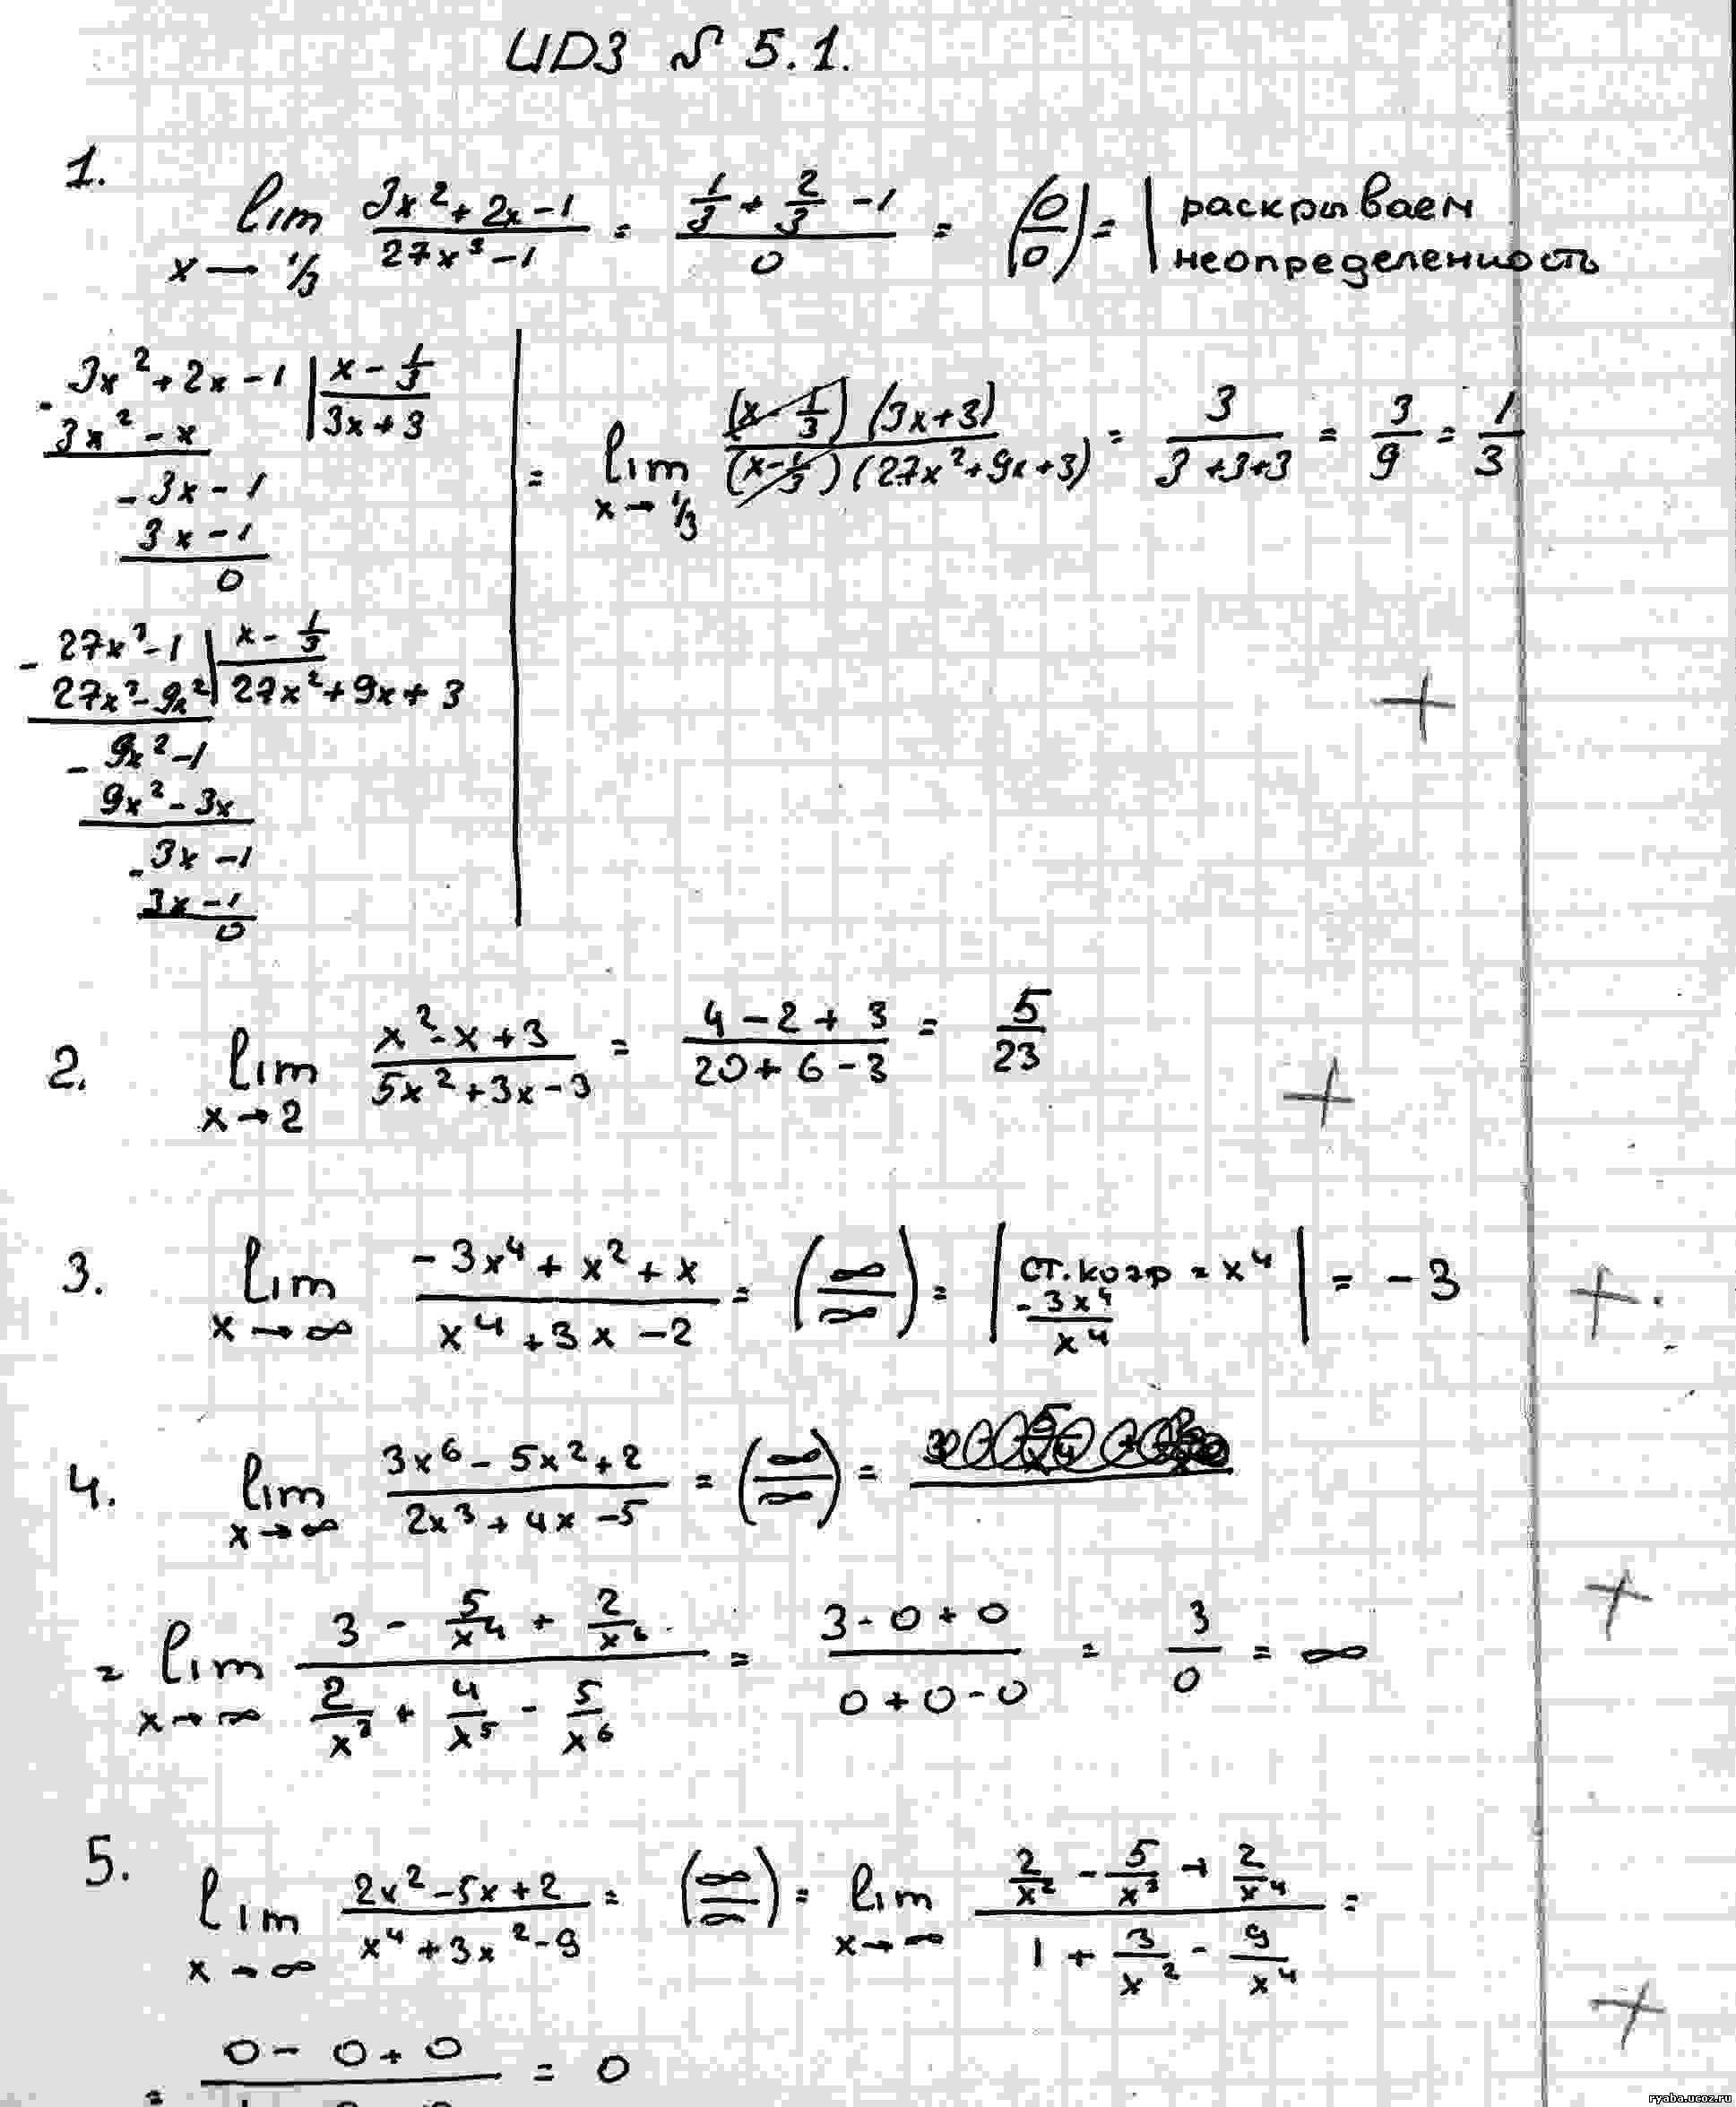 ИДЗ № 5.1.
1.
lim x → 1/3 (3x² + 2x - 1)/(27x³ - 1) = (1/3 + 2/3 - 1)/0 = (0/0) = | раскрываем неопределенность
- 3x² + 2x - 1 | x - 1/3
3x² - x | 3x + 3
- 3x - 1
3x - 1
0
- 27x³ - 1 | x - 1/3
27x³ - 9x² | 27x² + 9x + 3
- 9x² - 1
9x² - 3x
- 3x - 1
3x - 1
0
= lim x → 1/3 ((x - 1/3)(3x + 3))/((x - 1/3)(27x² + 9x + 3)) = 3/(3 + 3 + 3) = 3/9 = 1/3
+
2. lim x → 2 (x² - x + 3)/(5x² + 3x - 3) = (4 - 2 + 3)/(20 + 6 - 3) = 5/23
+
3. lim x → ∞ (-3x⁴ + x² + x)/(x⁴ + 3x - 2) = (∞/∞) = | ст. коэф = x⁴ -3x⁴/x⁴ | = -3 +.
4. lim x → ∞ (3x⁶ - 5x² + 2)/(2x³ + 4x - 5) = (∞/∞) =
= lim x → ∞ (3 - 5/x⁴ + 2/x⁶)/(2/x³ + 4/x⁵ - 5/x⁶) = (3 - 0 + 0)/(0 + 0 - 0) = 3/0 = ∞
+
5. lim x → ∞ (2x² - 5x + 2)/(x⁴ + 3x² - 9) = (∞/∞) = lim x → ∞ (2/x² - 5/x³ + 2/x⁴)/(1 + 3/x² - 9/x⁴) =
+
= 0 - 0 + 0 = 0
ryaba.ucoz.ru